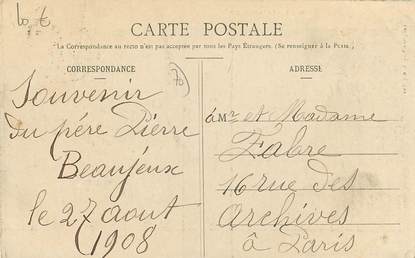 10 €
CARTE POSTALE
La Correspondance au recto n'est pas acceptée par tous les Pays Étrangers. (Se renseigner à la Poste.)
CORRESPONDANCE
ADRESSE
70
Souvenir
du père Pierre
Beaujeux
le 27 aout
1908
á Mr et Madame
Fabre
16 rue des
Archives
à Paris